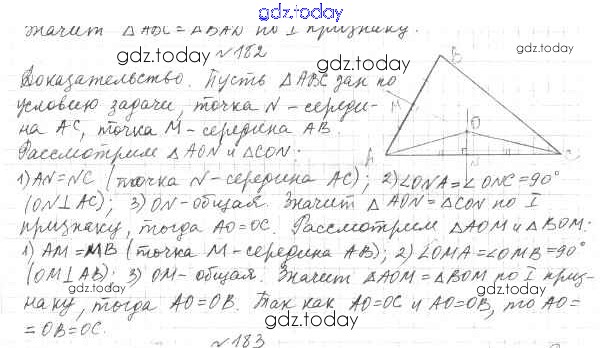 gdz.today
значит △ADC = △BAD по I признаку.
gdz.today
№182
Доказательство. Пусть △ABC дан по
условию задачи, точка N - середи-
на AC, точка M - середина AB.
Рассмотрим △AON и △CON:
B
M
O
A
N
C
gdz.today
1) AN=NC (точка N - середина AC); 2) ∠ONA=∠ONC=90°
(ON⊥AC); 3) ON - общая. Значит △AON=△CON по I
признаку, тогда AO=OC. Рассмотрим △AOM и △BOM:
gdz.today
1) AM=MB (точка M - середина AB); 2) ∠OMA=∠OMB=90°
(OM⊥AB); 3) OM - общая. Значит △AOM=△BOM по I приз-
наку, тогда AO=OB. Так как AO=OC и AO=OB, то AO=
=OB=OC.
gdz.today
№183
gdz.today